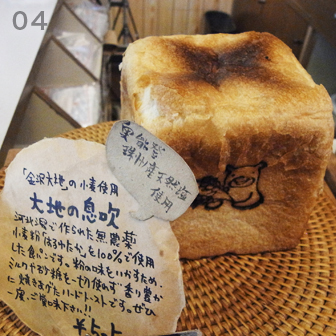 04
奥能登
珠洲産天然塩
使用
「金沢大地」の小麦使用
大地の息吹
河北潟で作られた無農薬
小麦粉「ゆきちから」を100%で使用
した食パンです。粉の味をいかすため、
ミルクやお砂糖を一切使わず香り豊か
に焼きあげたハードトーストです。ぜひ
一度、ご賞味下さい!!